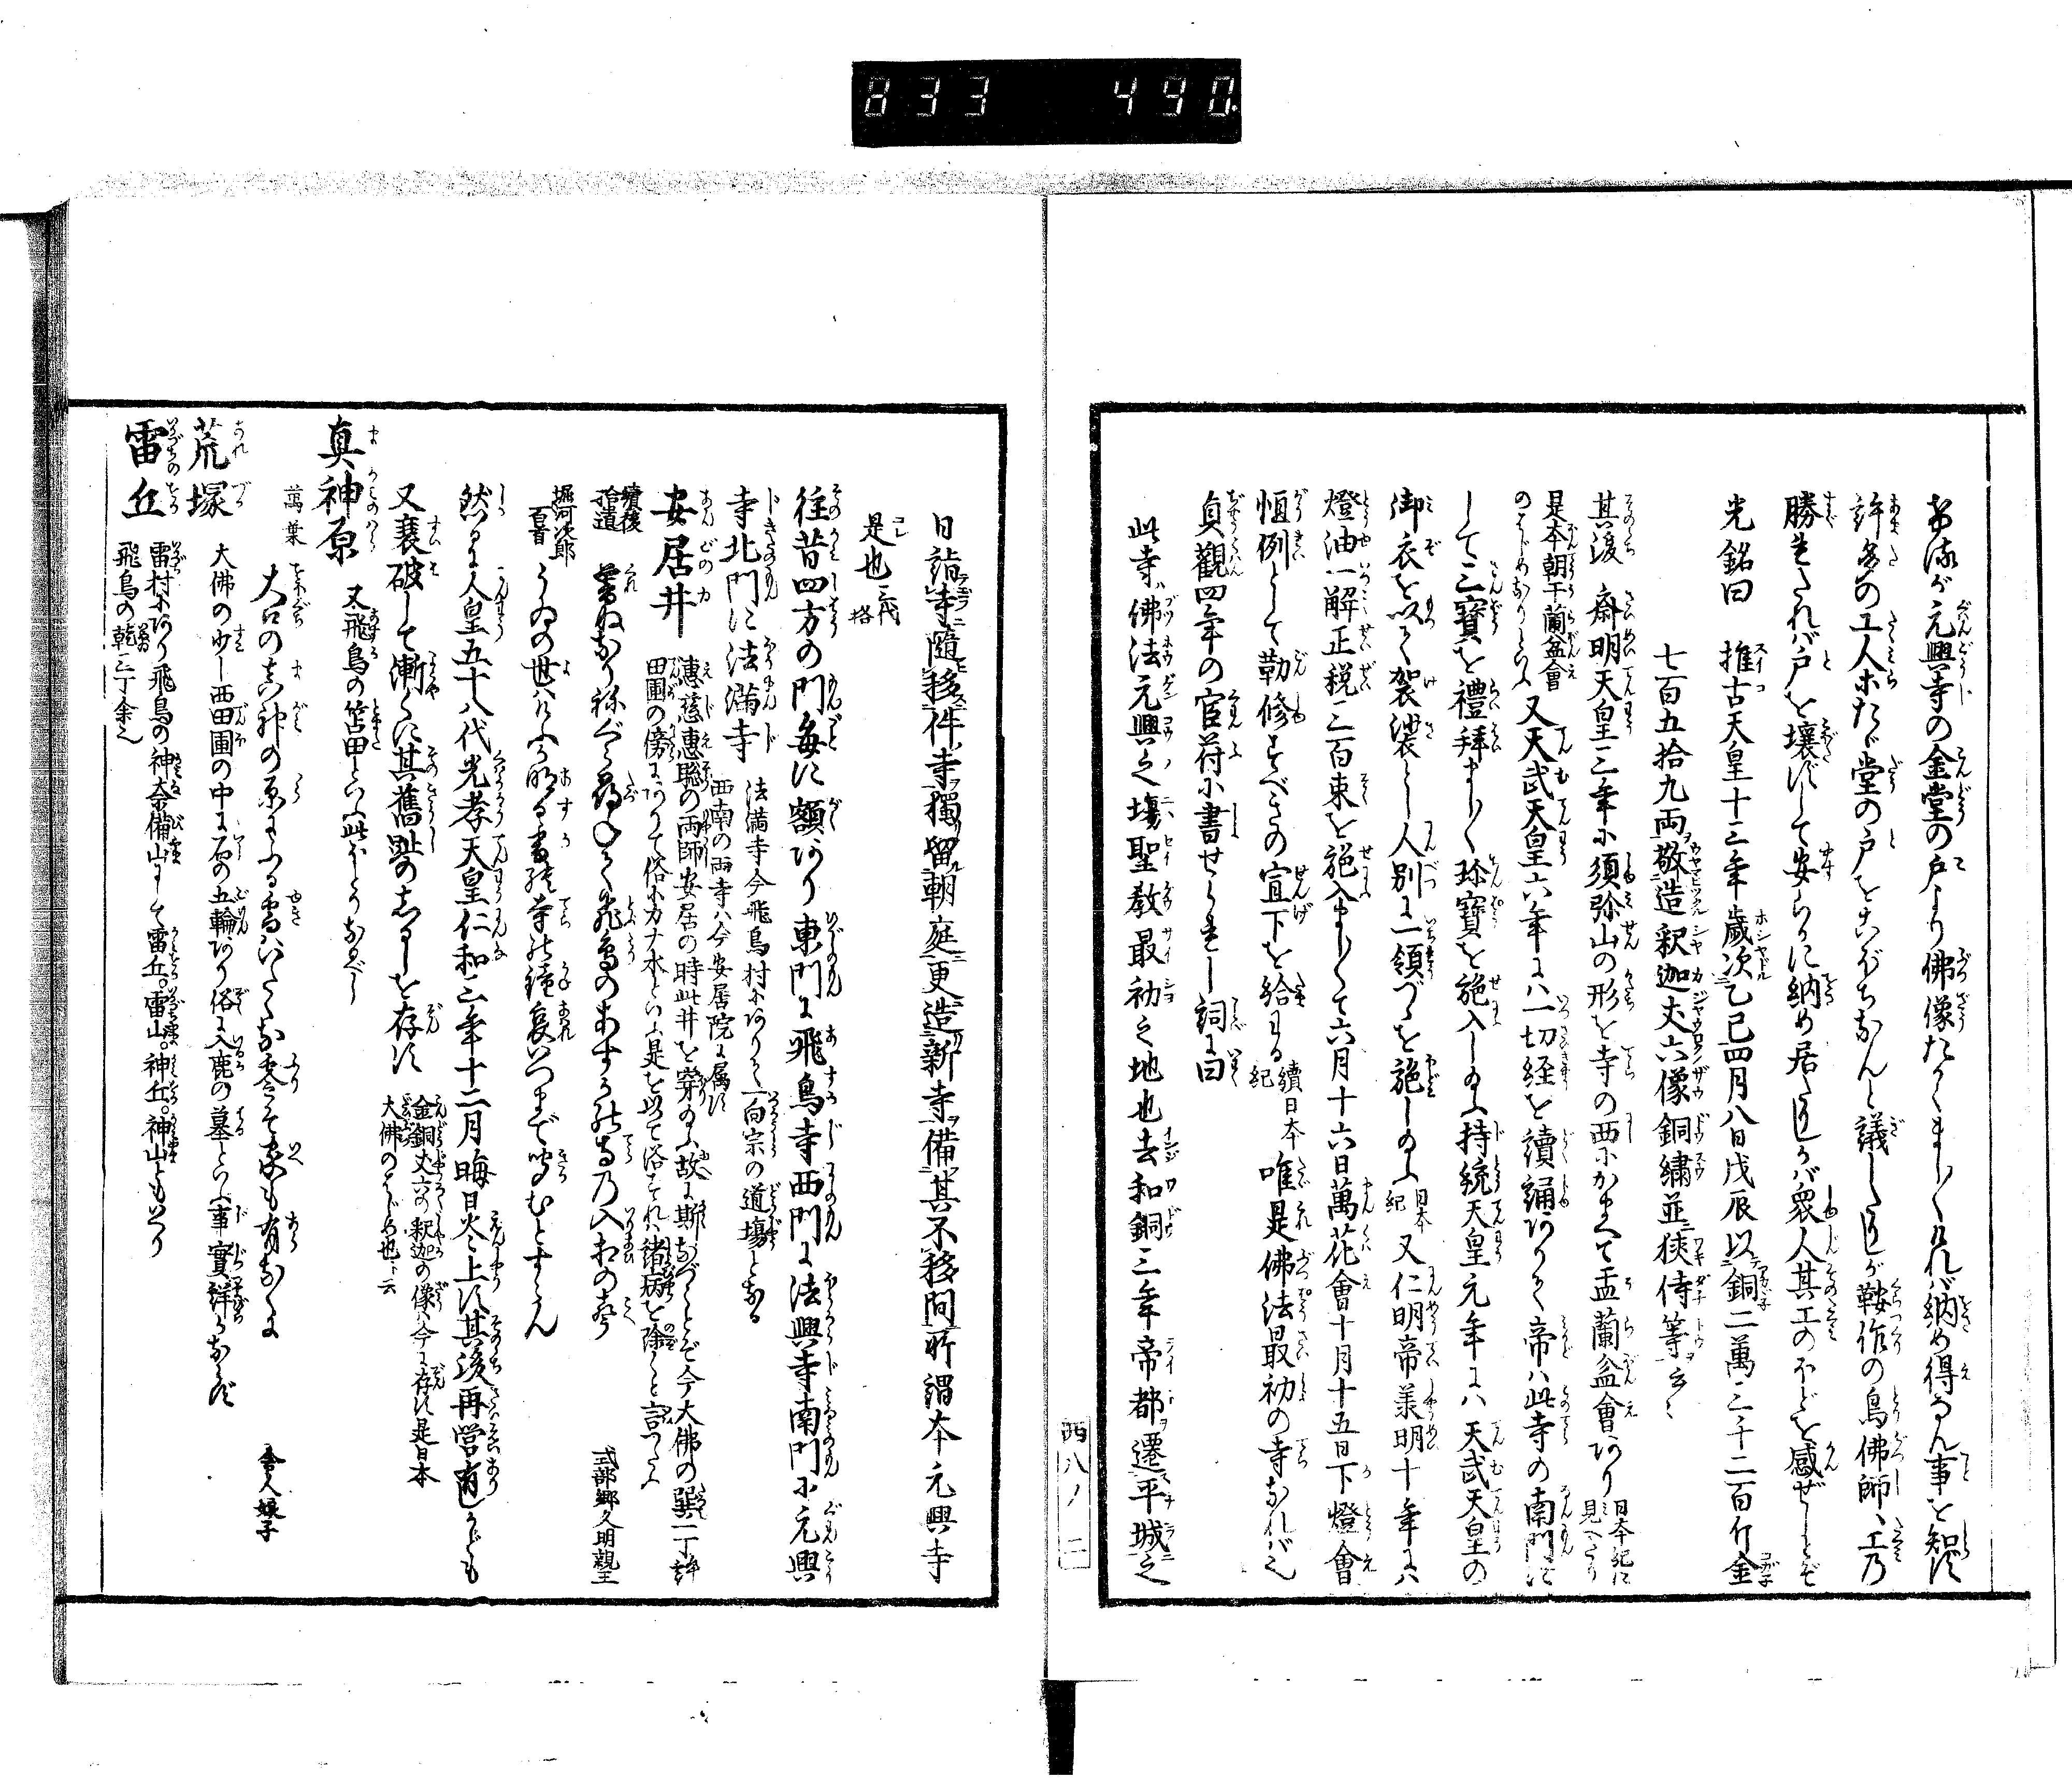 833 490
元興寺の金堂の戸より佛像たかくましくければ納め得なん事を知らず
許多の工人等たゞ堂の戸をこぼちなんと議したりしが鞍作の鳥佛師、工乃
勝たれば戸を壊ずして安らかに納め居たりしかば衆人其工のほどを感ぜしとぞ
光銘曰　推古天皇十三年歳次乙巳四月八日戊辰以銅二萬三千二百斤金
七百五拾九両敬造釈迦丈六像銅繍並狭侍等云々
其後　斎明天皇三年に須弥山の形を寺の西にかまへて盂蘭盆會あり 日本紀に見へたり
是本朝于蘭盆會のはじめなりといふ 又天武天皇六年には一切経を續誦ありて帝は此寺の南門に
して三寶を禮拝ましく珎寶を施入し給ふ持統天皇元年には天武天皇の
御衣を以て袈裟とし人別に一領づゝを施し給ふ 日本紀 又仁明帝羕明十年には
燈油一斛正税三百束を施入ましくて六月十六日萬花會十月十五日下燈會
恒例として勤修すべきの宣下を給はる 續日本紀 唯是佛法最初の寺なればとて
貞觀四年の官苻に書せられし詞に曰
此寺佛法元興之塲聖教最初之地也去和銅三年帝都遷平城之
西八ノ二
日諸寺隨移件寺獨留朝庭更造新寺備其不移間所謂本元興寺
是也 三代格
往昔四方の門毎に額あり東門に飛鳥寺西門に法興寺南門に元興
寺北門に法満寺 法満寺今飛鳥村にありて一向宗の道場となる 西南の両寺ハ今安居院に属す
安居井 惠慈惠聡の両師安居の時此井を穿給ふ故に斯なづくとぞ今大佛の巽一丁許 田圃の傍にありて俗にカナ水といふ是を以て浴すれハ諸病を除くと言つたふ
續後拾遺 暮ぬなり 飛鳥のあすかの寺の入相の聲 式部卿久明親王
堀河次郎百首 うゐの世は の明る 寺の鐘 いつまで きかむとすらん
然るに人皇五十八代光孝天皇仁和三年十二月晦日火上す其後再営有しかども
又衰破して漸くに其舊趾のしるしを存す 金銅丈六の釈迦の像は今に存す是日本大佛のはじめ也ト云
真神原 又飛鳥の苫田といふ此ほとりなるべし
萬葉 大口の真神の原にふる雪ハいたくなふりそ家も有なくに 舎人娘子
荒塚 大佛の少し西田圃の中に石の五輪あり俗に入鹿の墓といふ事實詳ならず
雷丘 雷村にあり飛鳥の神奈備山にして雷丘。雷山。神丘。神山ともいへり
飛鳥の乾三丁余也